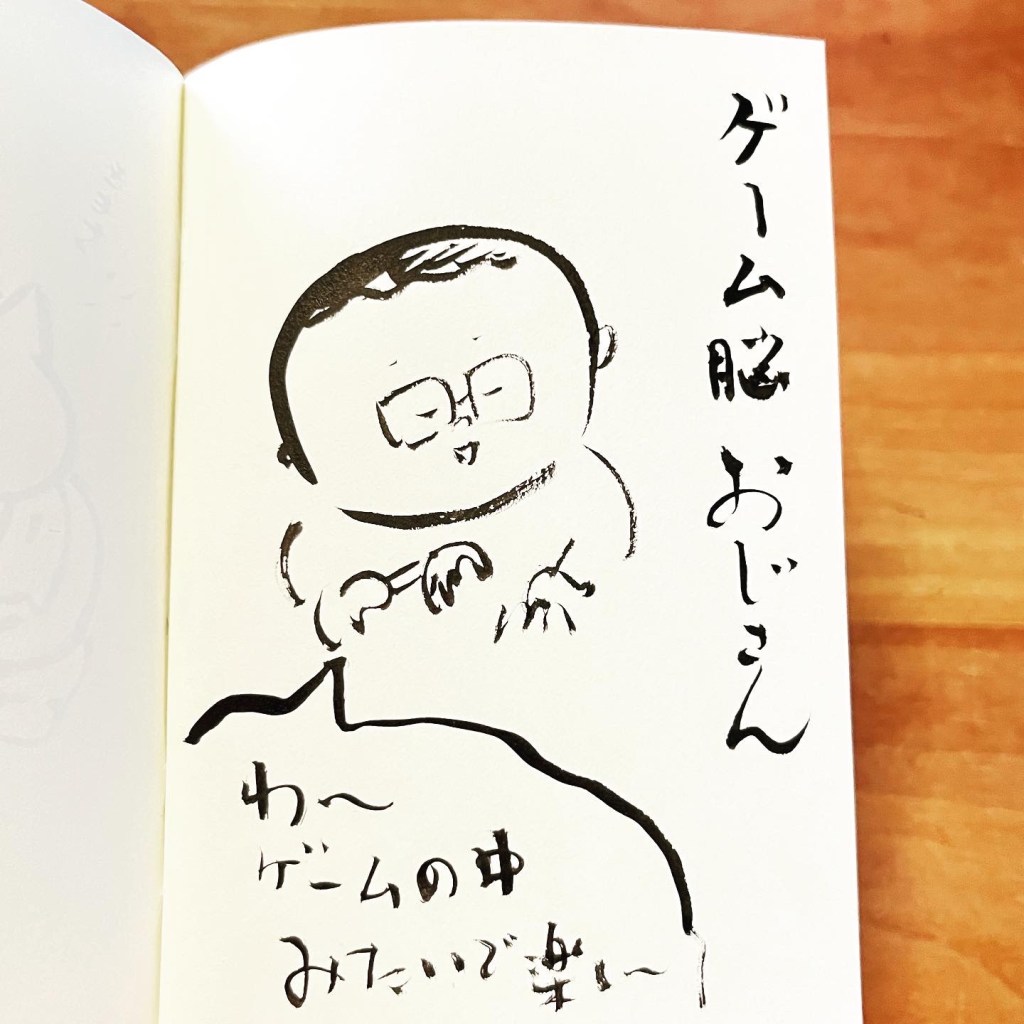 ゲーム脳おじさん
わ〜
ゲームの中
みたいで楽し〜